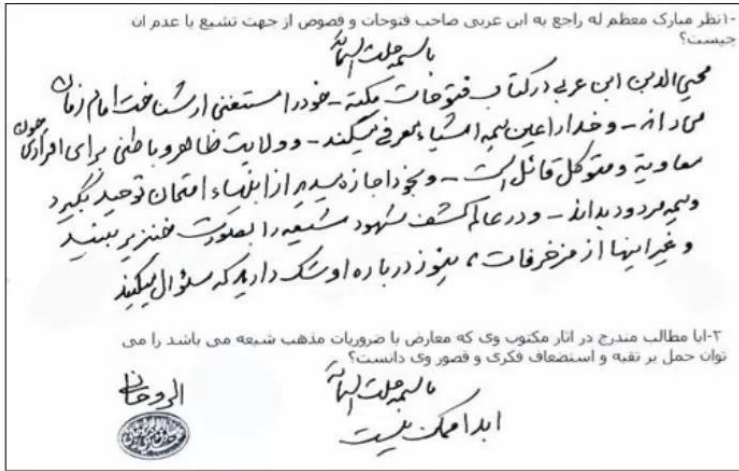 ۱-نظر مبارک معظم له راجع به ابن عربی صاحب فتوحات و فصوص از جهت تشیع یا عدم ان
چیست؟
باسمه جلت اسمائه
محیی الدین ابن عربی در کتاب فتوحات مکیه - خود را مستغنی از شناخت امام زمان
می داند - و خدا را عین همه اشیاء معرفی میکند - و ولایت ظاهر و باطنی برای افرادی چون
معاویة و متوکل قائل است - و بخود اجازه میدهد از انبیاء امتحان توحید بگیرد
و همه مردود بداند - و در عالم کشف شهود شیعه را بصورت خنزیر ببیند
و غیر اینها از مزخرفات، هنوز درباره او شک دارید که سئوال میکنید
۲-ایا مطالب مندرج در اثار مکتوب وی که معارض با ضروریات مذهب شیعه می باشد را می
توان حمل بر تقیه و استضعاف فکری و قصور وی دانست؟
باسمه جلت اسمائه
ابدا ممکن نیست
الروحانی